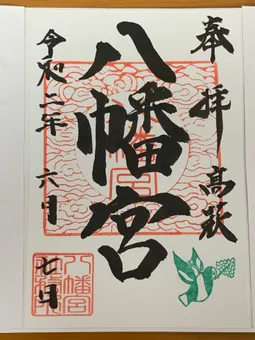 奉拝 高萩
八幡宮
令和二年 六月 七日
八幡宮